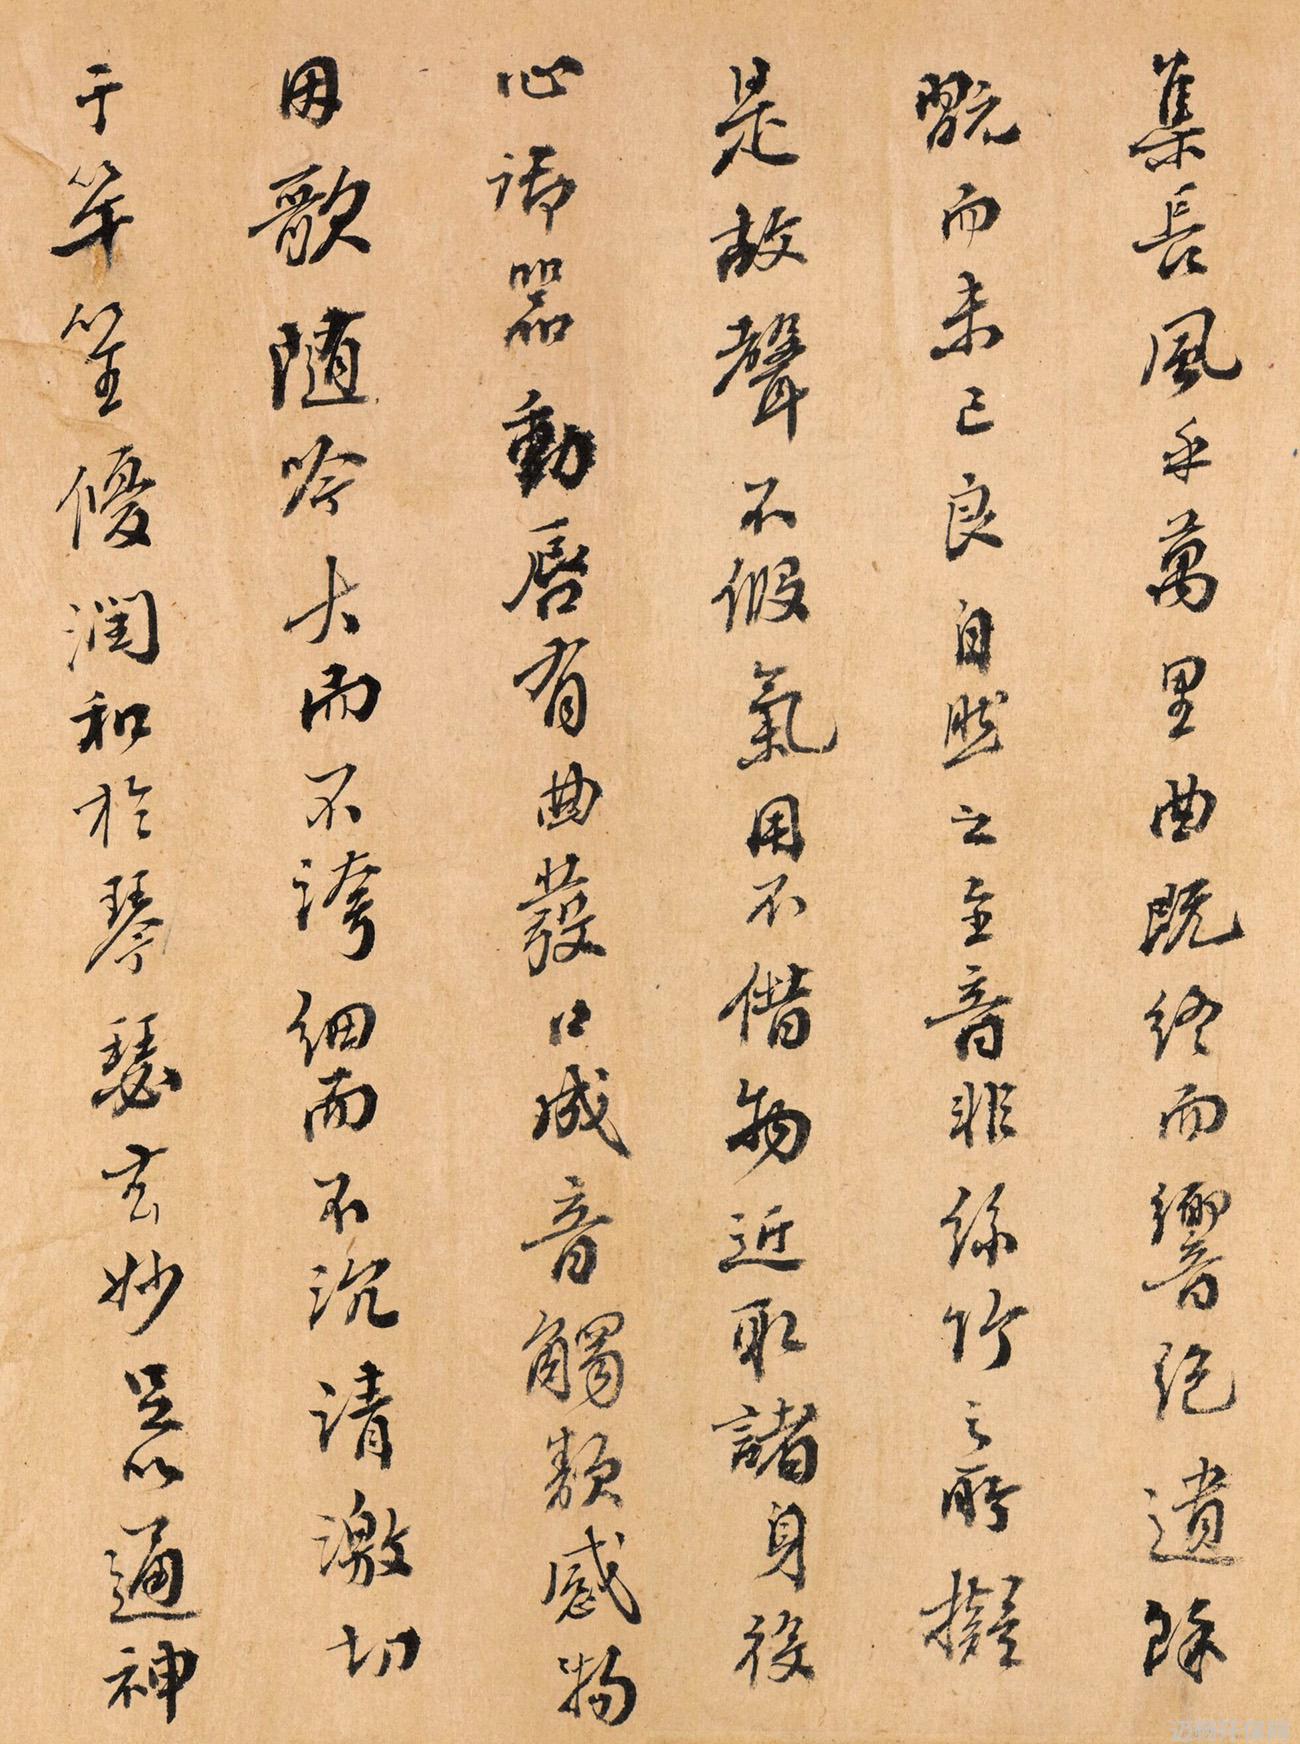 集長風乎萬里曲既終而響絶遺餘
翫而未已良自然之至音非絲竹之所擬
是故聲不假氣用不借物近取諸身役
心御器動唇有曲發口成音觸類感物
因歌隨吟大而不誇細而不沉清激切
于竽笙優潤和於琴瑟玄妙足以通神